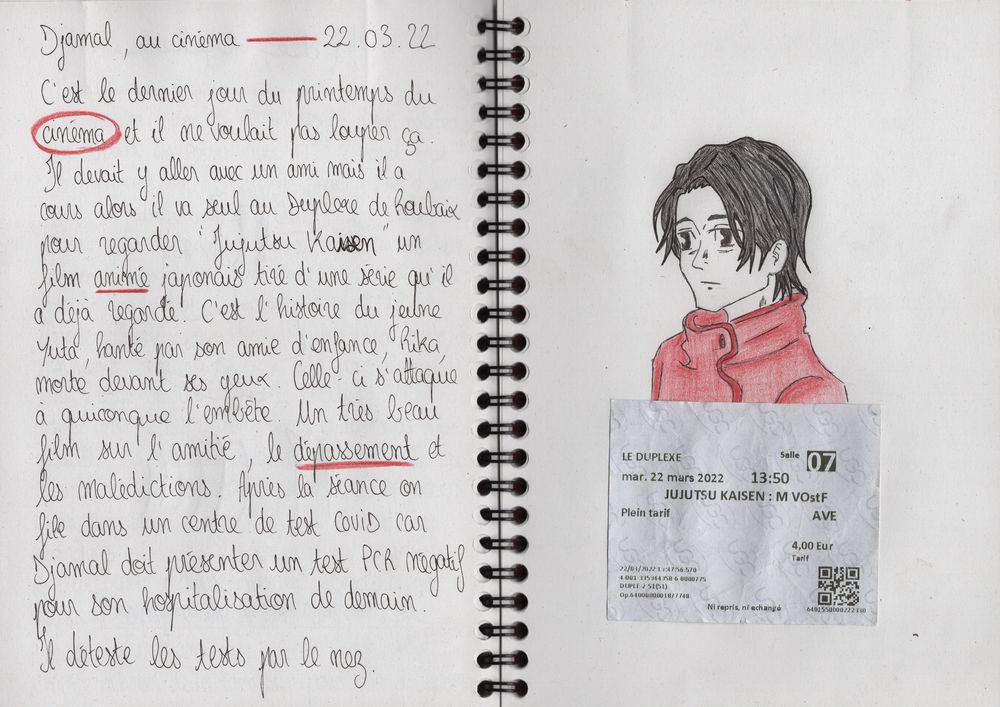 Djamal, au cinéma — 22.03.22
C'est le dernier jour du printemps du
cinéma et il ne voulait pas louper ça.
Il devait y aller avec un ami mais il a
cours alors il va seul au Duplexe de Roubaix
pour regarder "Jujutsu Kaisen" un
film animé japonais tiré d'une série qu'il
a déjà regardé. C'est l'histoire du jeune
Yuta, hanté par son amie d'enfance, Rika,
morte devant ses yeux. Celle-ci s'attaque
à quiconque l'embête. Un très beau
film sur l'amitié, le dépassement et
les malédictions. Après la séance on
file dans un centre de test Covid car
Djamal doit présenter un test PCR négatif
pour son hospitalisation de demain.
Il déteste les tests par le nez.
LE DUPLEXE Salle 07
mar. 22 mars 2022 13:50
JUJUTSU KAISEN : M VOstF
Plein tarif AVE
4,00 Eur
Tarif
Ni repris, ni échangé